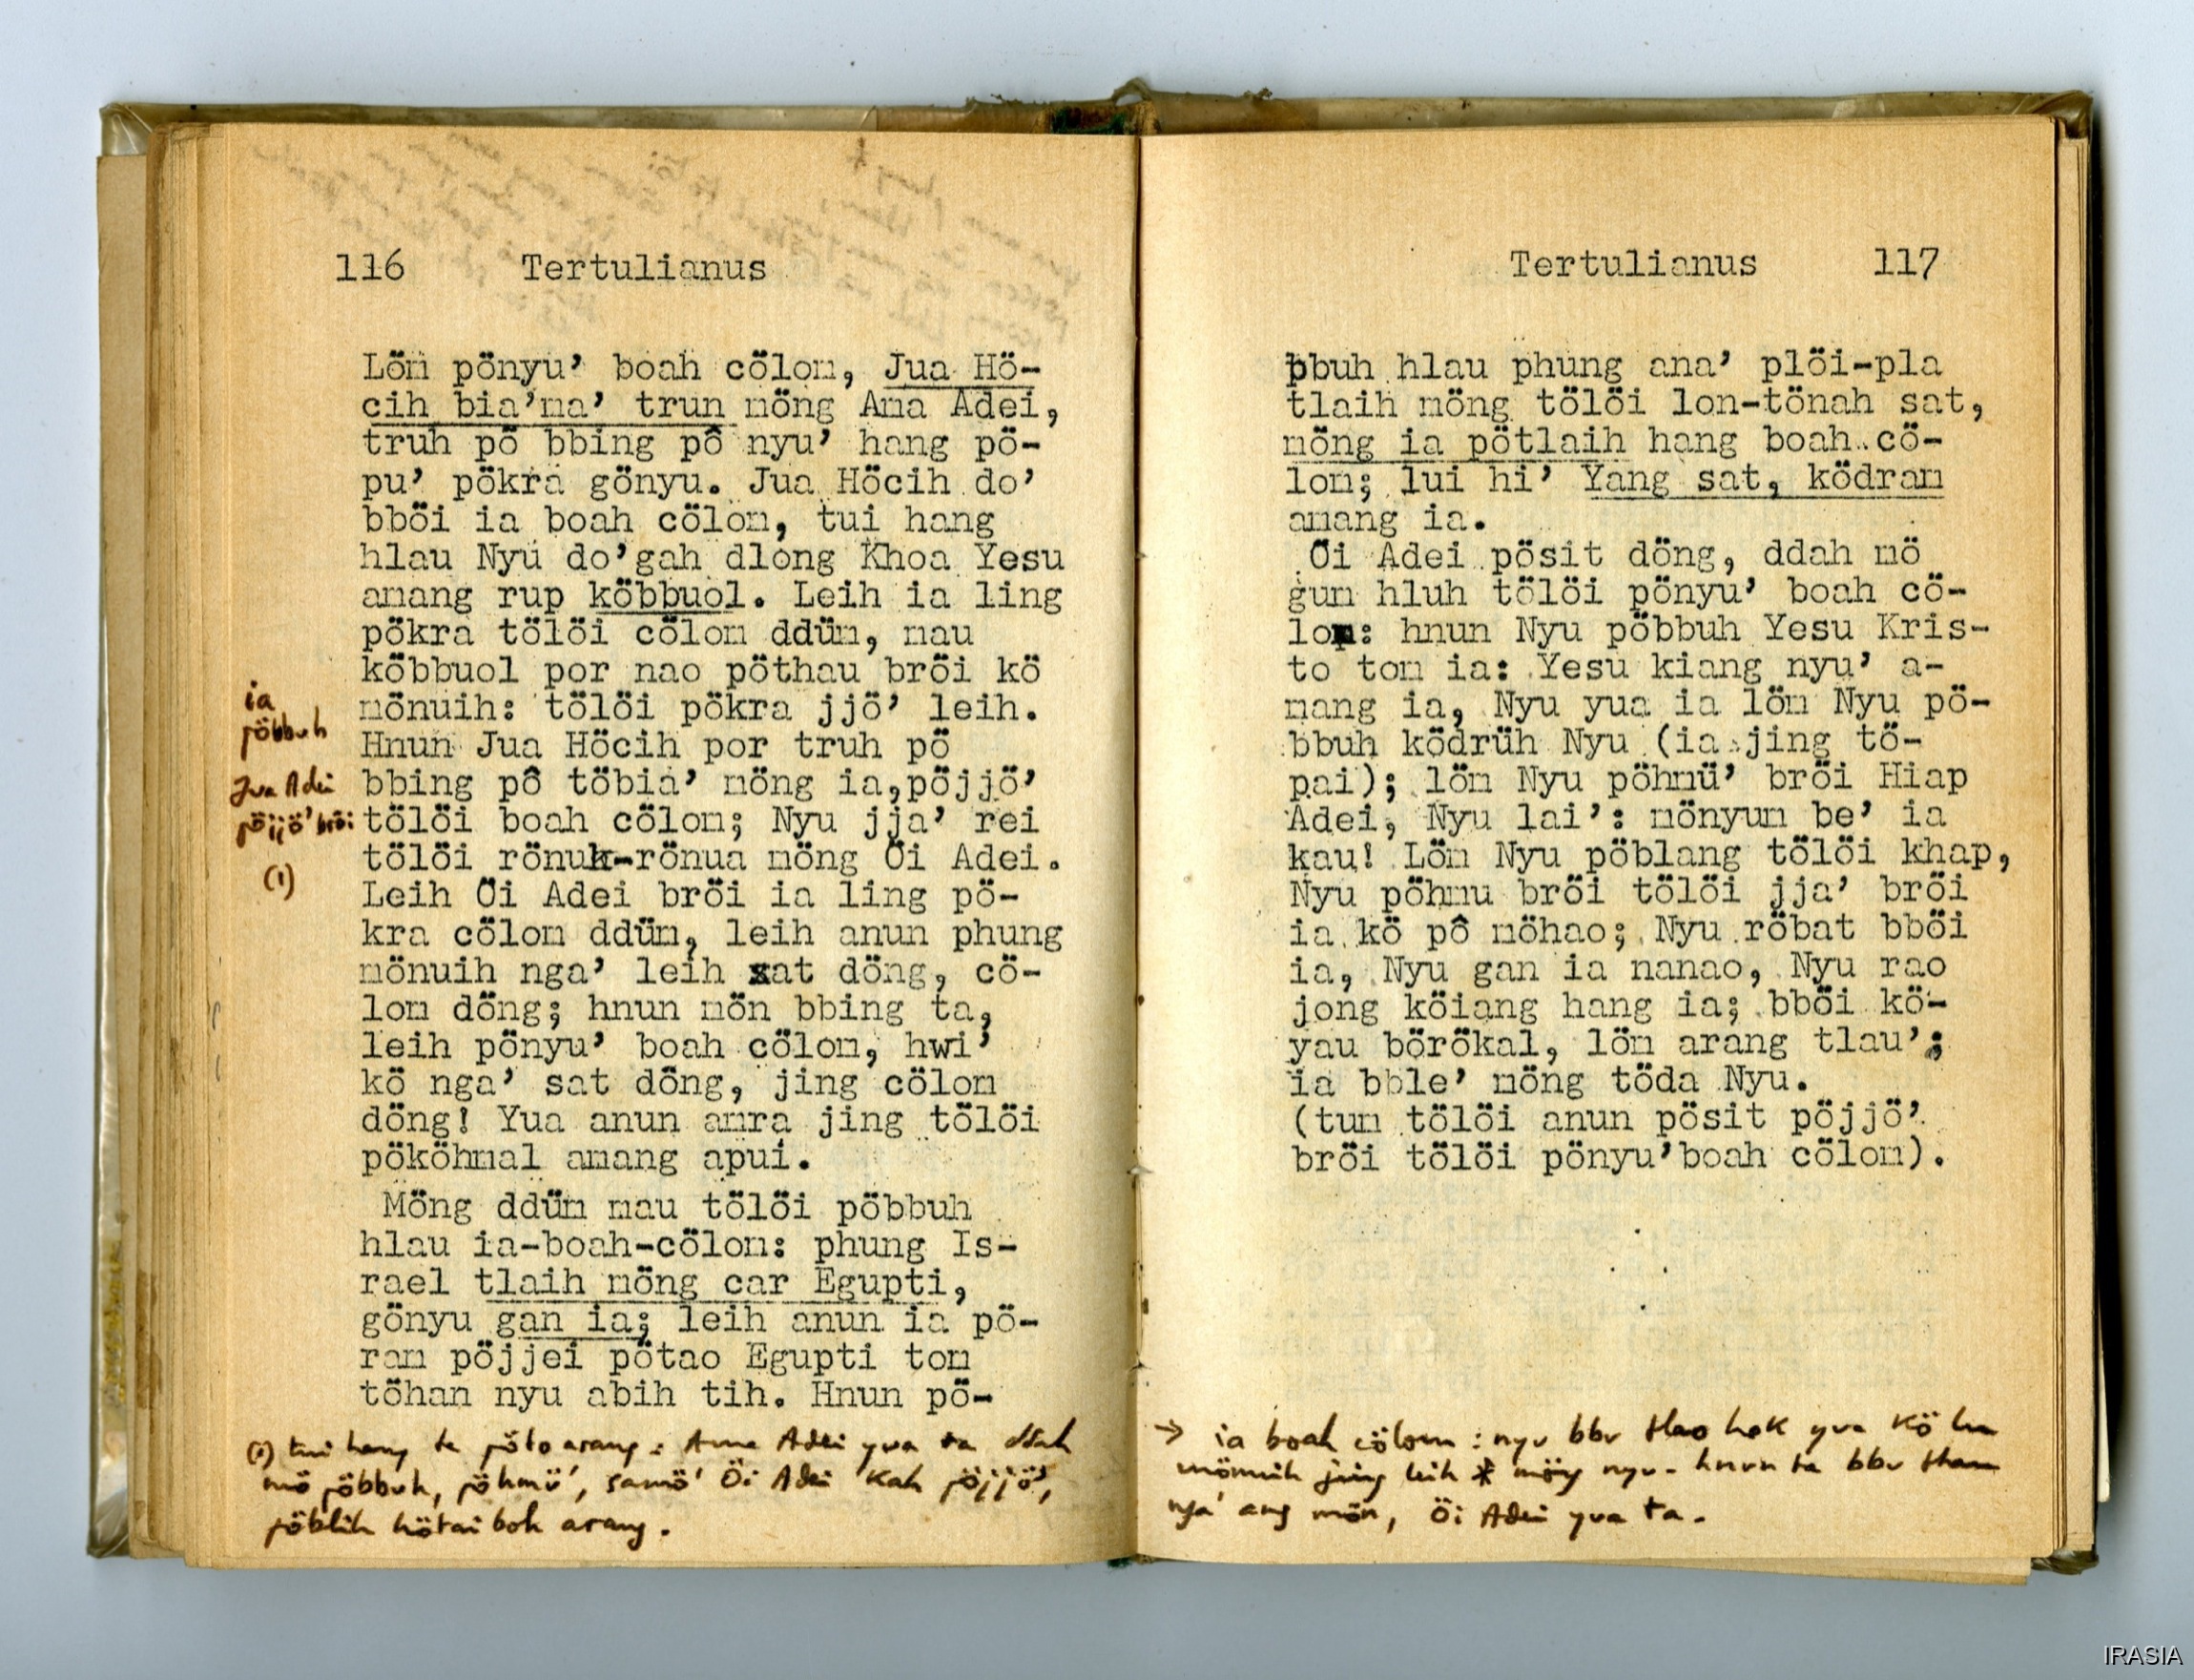 116 Tertulianus
Lŏm pönyu’ boah cŏlom, Jua Hö-
cih bia’ma’ trun mŏng Ama Adei,
truh pŏ bbing pô nyu’ hang pö-
pu’ pökra gönyu. Jua Höcih do’
bbŏi ia boah cŏlom, tui hang
hlau Nyu do’gah dlong Khoa Yesu
amang rup kŏbbuol. Leih ia ling
pökra tölŏi cŏlom ddŭm, mau
kŏbbuol por nao pöthau brŏi kö
mönuih: tölŏi pökra jjŏ’ leih.
Hnun Jua Höcih por truh pŏ
bbing pô töbia’ mŏng ia,pöjjŏ’
tölŏi boah cŏlom; Nyu jja’ rei
tölŏi rönuk-rönua mŏng Ŏi Adei.
Leih Ŏi Adei brŏi ia ling pö-
kra cŏlom ddŭm, leih anun phung
mönuih nga’ leih sat dŏng, cŏ-
lom dŏng; hnun mŏn bbing ta,
leih pönyu’ boah cŏlom, hwi’
kö nga’ sat dŏng, jing cŏlom
dŏng! Yua anun amra jing tölŏi
pököhmal amang apui.
Mŏng ddŭm mau tölŏi pöbbuh
hlau ia-boah-cŏlom: phung Is-
rael tlaih mŏng car Egupti,
gönyu gan ia; leih anun ia pö-
ram pöjjei pötao Egupti tom
töhan nyu abih tih. Hnun pö-
ia
pöbbuh
Jua Adei
pöjjŏ’ brŏi
(1)
(1) tui hang ta pŏto arang: Ama Adei yua ta ddah
mö pöbbuh, pöhmŭ’, samö’ Ŏi Adei kah pöjjŏ’,
pöblih hötai boh arang.
Tertulianus 117
bbuh hlau phung ana’ plŏi-pla
tlaih mŏng tölŏi lon-tönah sat,
mŏng ia pötlaih hang boah cŏ-
lom; lui hi’ Yang sat, ködram
amang ia.
Ŏi Adei pösit dŏng, ddah mö
gun hluh tölŏi pönyu’ boah cŏ-
lom: hnun Nyu pöbbuh Yesu Kris-
to tom ia: Yesu kiang nyu’ a-
mang ia, Nyu yua ia lŏm Nyu pö-
bbuh ködrŭh Nyu (ia jing tö-
pai); lŏm Nyu pöhmŭ’ brŏi Hiap
Adei, Nyu lai’: mönyum be’ ia
kau! Lŏm Nyu pöblang tölŏi khap,
Nyu pöhmu brŏi tölŏi jja’ brŏi
ia kö pô möhao; Nyu röbat bbŏi
ia, Nyu gan ia nanao, Nyu rao
jong köiang hang ia; bbŏi kö-
yau börŏkal, lŏm arang tlau’;
ia bble’ mŏng töda Nyu.
(tum tölŏi anun pösit pöjjŏ’
brŏi tölŏi pönyu’boah cŏlom).
→ ia boah cŏlom: nyu bbu tlao hok yua kö
mönuih jing leih mŏng nyu. hnun ta bbu
nga’ ang mŏn, Ŏi Adei yua ta.
IRASIA